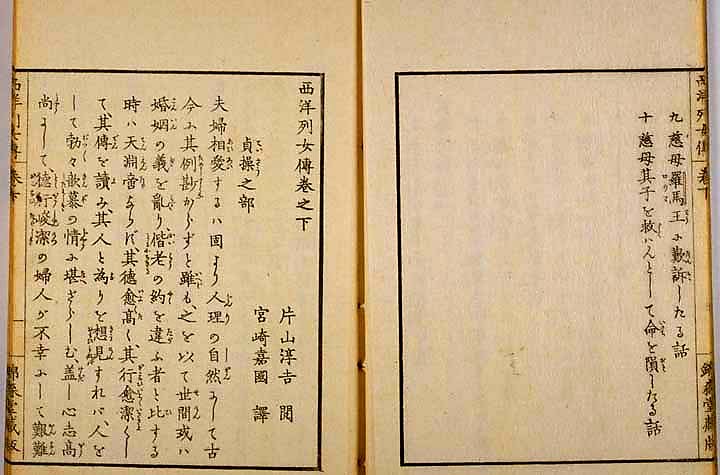 九 慈母羅馬王に歎訴したる話
十 慈母其子を救ハんとして命を隕したる話
西洋列女傳卷之下
片山淳吉 閲
宮崎嘉國 譯
貞操之部
夫婦相愛するハ固より人理の自然にして古
今に其例尠からずと雖も、之を以て世間或ハ
婚姻の義を亂り偕老の約を違ふ者と比する
時ハ天淵啻ならず、其德愈高く、其行愈潔くし
て其傳を讀み、其人と為りを想見すれバ、人を
して勃々歆慕の情に堪ざらしむ、蓋し心志高
尚にして、德行峻潔の婦人が不幸にして艱難
西洋列女傳 卷下